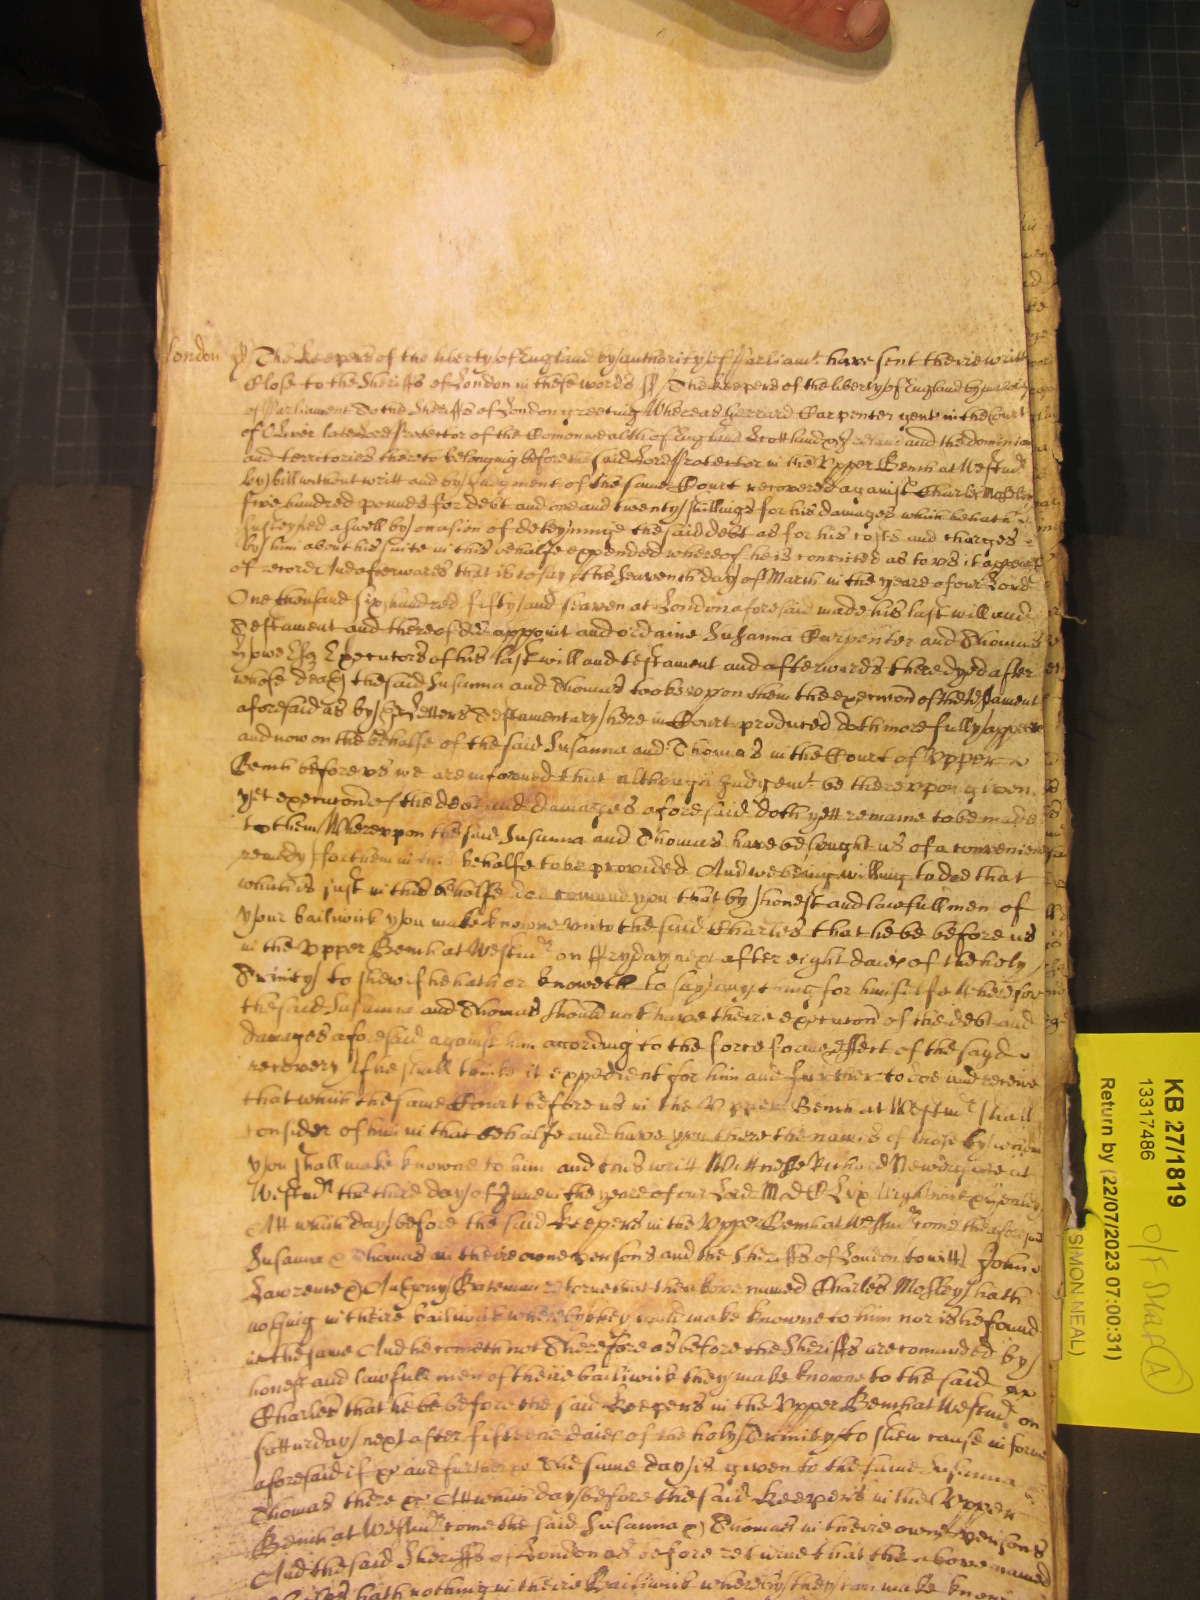 London ss The Keepers of the liberty of England by authority of Parliamt. have sent theire writt
Close to the Sheriffs of London in these words ss The Keepers of the liberty of England by
of Parliament To the Sheriffs of London greeting Whereas Gerrard Carpenter gent in the Court
of Oliver late Lord Protector of the Comonwealth of England Scotland & Ireland and the dominions
and territories thereto belonging before the said Lord Protector in the Upper Bench at Westmr
by bill without writt and by Judgment of the same Court recovered against Charles Mosley
five hundred pounds for debt and one and twenty shillings for his damages which he hath
susteyned aswell by occasion of deteyninge the said debt as for his costs and charges
by him about his suite in this behalfe expended whereof he is convicted as to us it appeares
of record And afterwards that is to say the seaventh day of March in the yeare of our Lord
One thousand six hundred fifty and seaven at London aforesaid made his last will and
Testament and thereof did appoint and ordaine Susanna Carpenter and Thomas
Executors of his last will and testament and afterwards there dyed after
whose death the said Susanna and Thomas tooke upon them the execucon of the testament
aforesaid as by Letters Testamentary here in Court produced doth more fully appeare
and now on the behalfe of the said Susanna and Thomas in the Court of Upper
Bench before us we are informed that although Judgemt. be thereupon given
yet execucon of the debt and damages aforesaid doth yett remaine to be made
to them Whereupon the said Susanna and Thomas have besought us of a convenient
remedy for them in this behalfe to be provided And we being willing to doe that
which is just in this behalfe doe comand you that by honest and lawfull men of
your bailiwick you make knowne unto the said Charles that he be before us
in the Upper Bench at Westmr on ffryday next after eight daies of the holy
Trinity to shew if he hath or knoweth to say any thing for himselfe wherefore
the said Susanna and Thomas should not have theire execucon of the debt and
damages aforesaid against him according to the force forme & effect of the sayd
recovery If he shall thinke it expedient for him and further to doe and receive
that which the same Court before us in the Upper Bench at Westmr shall
consider of him in that behalfe and have you there the names of those by whom
you shall make knowne to him and this writt Wittnesse Richard Newdigate at
Westmr the third day of June in the yeare of our Lord MDCLix
Att which day before the said Keepers in the Upper Bench at Westmr come the aforesaid
Susanna & Thomas in theire owne persons and the Sheriffs of London to witt John
Lawrence & Anthony Bateman retorne that the above named Charles Mosley hath
nothing in theire bailiwick whereby they could make knowne to him nor is he found
in the same And he cometh not Therefore as before the Sheriffs are comanded by
honest and lawfull men of theire bailiwick they make knowne to the said
Charles that he be before the said Keepers in the Upper Bench at Westmr on
Satturday next after fifteene daies of the holy Trinity to shew cause in forme
aforesaid if &c and further &c The same day is given to the same Susanna &
Thomas there &c Att which day before the said Keepers in the Upper
Bench at Westmr come the said Susanna & Thomas in theire owne persons
And the said Sheriffs of London as before retorne that the abovenamed
Charles hath nothing in theire Bailiwick whereby they can make knowne
KB 27/1819
13317486
Return by (22/07/2023 07:00:31)
(SIMON NEAL)
O/F Staff (A)